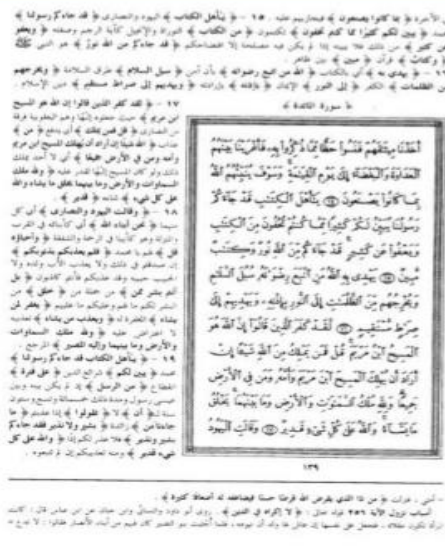 الآخرة ﴿ بما كانوا يصنعون ﴾ فيجازيهم عليه . ١٥ - ﴿ يأهل الكتاب ﴾ اليهود والنصارى ﴿ قد جاءكم رسولنا ﴾
محمد ﴿ يبين لكم كثيرا مما كنتم تخفون ﴾ تكتمون ﴿ من الكتاب ﴾ التوراة والإنجيل كآية الرجم وصفته ﴿ ويعفو
عن كثير ﴾ من ذلك فلا يبينه إذا لم يكن فيه مصلحة إلا افتضاحكم ﴿ قد جاءكم من الله نور ﴾ هو النبي ﷺ
﴿ وكتاب ﴾ قرآن ﴿ مبين ﴾ بين ظاهر .
﴿ يهدي به ﴾ أي بالكتاب ﴿ الله من اتبع رضوانه ﴾ بأن آمن ﴿ سبل السلام ﴾ طرق السلامة ﴿ ويخرجهم
من الظلمات ﴾ الكفر ﴿ إلى النور ﴾ الإيمان ﴿ بإذنه ﴾ بإرادته ﴿ ويهديهم إلى صراط مستقيم ﴾ دين الإسلام .
﴿ سورة المائدة ﴾
أَخَذْنَا مِيثَٰقَهُمْ فَنَسُوا۟ حَظًّا مِّمَّا ذُكِّرُوا۟ بِهِۦ فَأَغْرَيْنَا بَيْنَهُمُ
ٱلْعَدَاوَةَ وَٱلْبَغْضَآءَ إِلَىٰ يَوْمِ ٱلْقِيَٰمَةِ وَسَوْفَ يُنَبِّئُهُمُ ٱللَّهُ
بِمَا كَانُوا۟ يَصْنَعُونَ ١٤ يَٰٓأَهْلَ ٱلْكِتَٰبِ قَدْ جَآءَكُمْ
رَسُولُنَا يُبَيِّنُ لَكُمْ كَثِيرًا مِّمَّا كُنتُمْ تُخْفُونَ مِنَ ٱلْكِتَٰبِ
وَيَعْفُوا۟ عَن كَثِيرٍ قَدْ جَآءَكُم مِّنَ ٱللَّهِ نُورٌ وَكِتَٰبٌ
مُّبِينٌ ١٥ يَهْدِى بِهِ ٱللَّهُ مَنِ ٱتَّبَعَ رِضْوَٰنَهُۥ سُبُلَ ٱلسَّلَٰمِ
وَيُخْرِجُهُم مِّنَ ٱلظُّلُمَٰتِ إِلَى ٱلنُّورِ بِإِذْنِهِۦ وَيَهْدِيهِمْ إِلَىٰ
صِرَٰطٍ مُّسْتَقِيمٍ ١٦ لَّقَدْ كَفَرَ ٱلَّذِينَ قَالُوٓا۟ إِنَّ ٱللَّهَ هُوَ
ٱلْمَسِيحُ ٱبْنُ مَرْيَمَ قُلْ فَمَن يَمْلِكُ مِنَ ٱللَّهِ شَيْـًٔا إِنْ
أَرَادَ أَن يُهْلِكَ ٱلْمَسِيحَ ٱبْنَ مَرْيَمَ وَأُمَّهُۥ وَمَن فِى ٱلْأَرْضِ
جَمِيعًا وَلِلَّهِ مُلْكُ ٱلسَّمَٰوَٰتِ وَٱلْأَرْضِ وَمَا بَيْنَهُمَا يَخْلُقُ
مَا يَشَآءُ وَٱللَّهُ عَلَىٰ كُلِّ شَىْءٍ قَدِيرٌ ١٧ وَقَالَتِ ٱلْيَهُودُ
١٧ - ﴿ لقد كفر الذين قالوا إن الله هو المسيح
ابن مريم ﴾ حيث جعلوه إلها وهم اليعقوبية فرقة
من النصارى ﴿ قل فمن يملك ﴾ أي يدفع ﴿ من ﴾
عذاب ﴿ الله شيئا إن أراد أن يهلك المسيح ابن مريم
وأمه ومن في الأرض جميعا ﴾ أي لا أحد يملك
ذلك ولو كان المسيح إلها لقدر عليه ﴿ ولله ملك
السماوات والأرض وما بينهما يخلق ما يشاء والله
على كل شيء ﴾ شاءه ﴿ قدير ﴾ .
١٨ - ﴿ وقالت اليهود والنصارى ﴾ أي كل
منهما ﴿ نحن أبناء الله ﴾ أي كأبنائه في القرب
والمنزلة وهو كأبينا في الرحمة والشفقة ﴿ وأحباؤه
قل ﴾ لهم يا محمد ﴿ فلم يعذبكم بذنوبكم ﴾
﴿ بشر ممن ﴾ من جملة من ﴿ خلق ﴾ من
البشر لكم ما لهم وعليكم ما عليهم ﴿ يغفر لمن
يشاء ﴾ المغفرة له ﴿ ويعذب من يشاء ﴾ تعذيبه
لا اعتراض عليه ﴿ ولله ملك السماوات
والأرض وما بينهما وإليه المصير ﴾ المرجع .
١٩ - ﴿ يأهل الكتاب قد جاءكم رسولنا ﴾
محمد ﴿ يبين لكم ﴾ شرائع الدين ﴿ على فترة ﴾
انقطاع ﴿ من الرسل ﴾ إذ لم يكن بينه وبين
عيسى رسول ومدة ذلك خمسمائة وتسع وستون
سنة لـ ﴿ أن ﴾ لا ﴿ تقولوا ﴾ إذا عذبتم ﴿ ما
جاءنا من ﴾ زائدة ﴿ بشير ولا نذير فقد جاءكم
بشير ونذير ﴾ فلا عذر لكم إذا ﴿ والله على كل
شيء قدير ﴾ ومنه تعذيبكم إن لم تتبعوه .
١٣٩
﴿ من ذا الذي يقرض الله قرضا حسنا فيضاعفه له أضعافا كثيرة ﴾ .
أسباب نزول الآية ٢٥٦ قوله تعالى : ﴿ لا إكراه في الدين ﴾ . روى أبو داود والنسائي وابن حبان عن ابن عباس قال : كانت